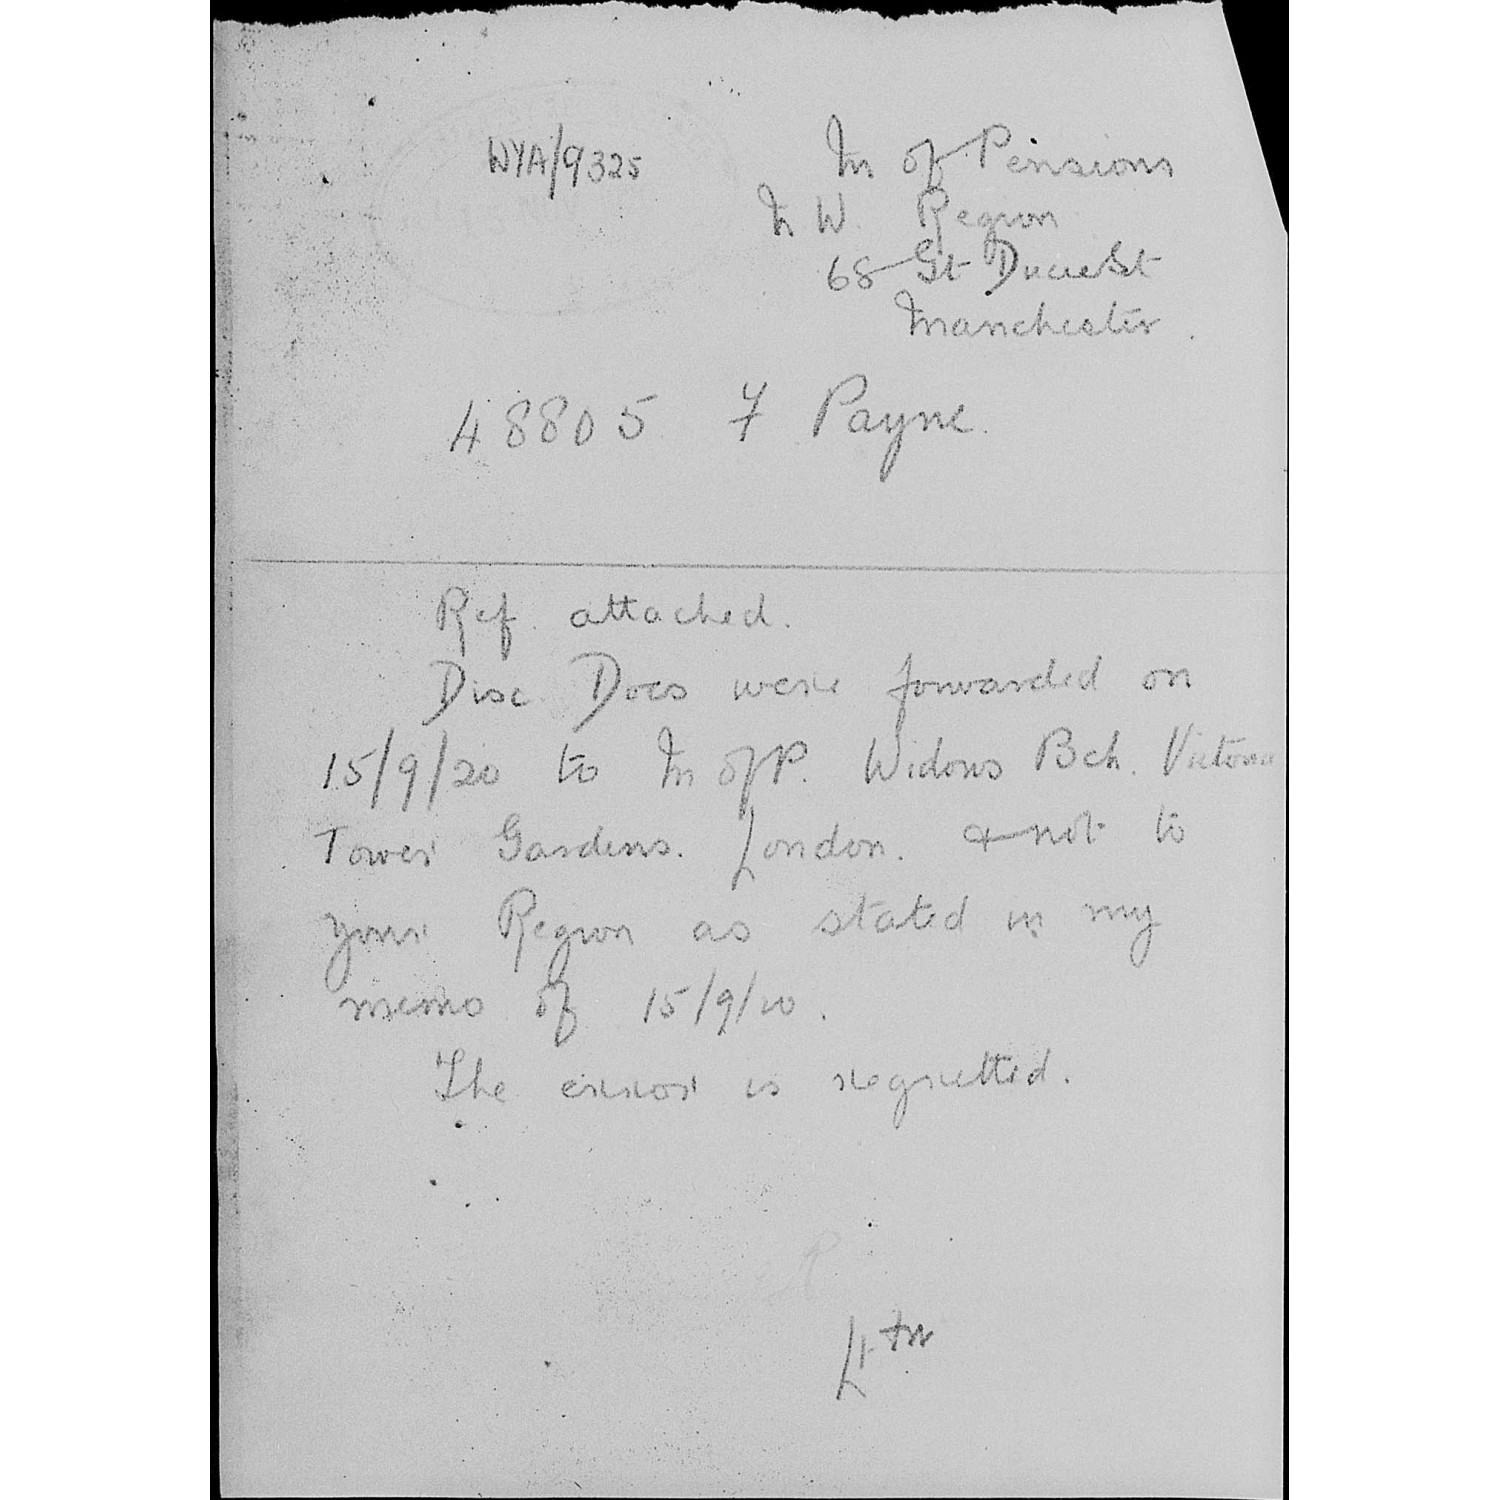 WYA/9325
M of Pensions
N W. Region
68 Gt Ducie St
Manchester.
48805 F Payne.
Ref. attached.
Disc Docs were forwarded on
15/9/20 to M of P. Widows Bch. Victoria
Tower Gardens. London. & not to
your Region as stated in my
memo of 15/9/20.
The error is regretted.